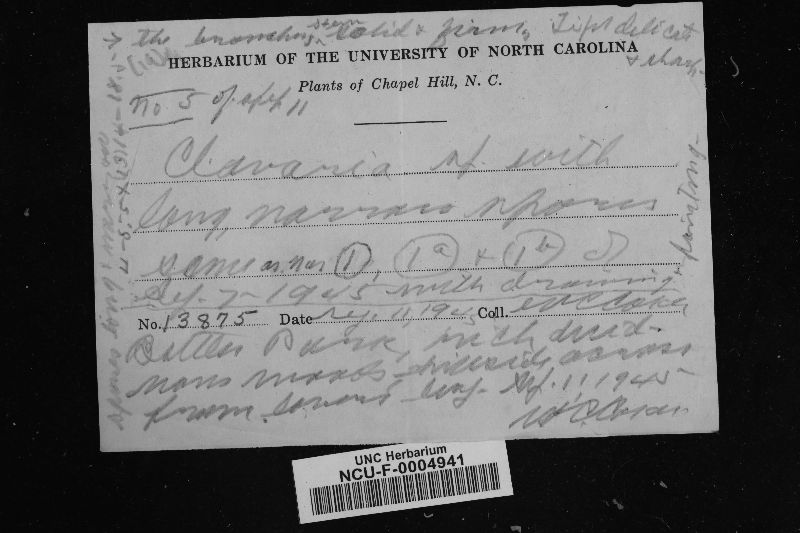 the branching stem solid & firm, Tips delicate
& sharp
HERBARIUM OF THE UNIVERSITY OF NORTH CAROLINA
Plants of Chapel Hill, N. C.
No. 5 of Sept 11
Clavaria sp. with
long, narrow spores
same as nos 1, 1a & 1b of
Sep. 7 - 1945 with drawing
No. 13875 Date Sep. 11, 1945 Coll. W C Coker
Battles Park, rich
woods hillside across
from Sep. 11, 1945
W C Coker
spores long &
UNC Herbarium
NCU-F-0004941